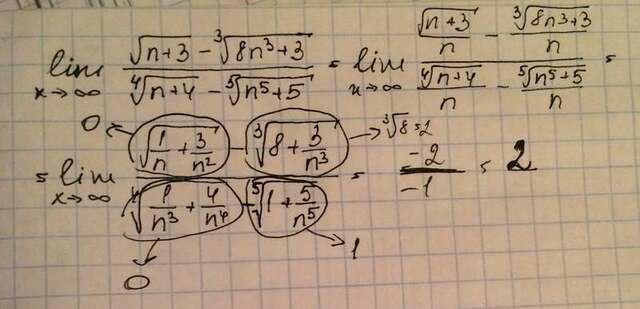 lim x→∞ (√(n+3) - ∛(8n³+3)) / (∜(n+4) - ⁵√(n⁵+5)) = lim x→∞ (√(n+3)/n - ∛(8n³+3)/n) / (∜(n+4)/n - ⁵√(n⁵+5)/n) =
0 ∛8=2
= lim x→∞ (√(1/n + 3/n²) - ∛(8 + 3/n³)) / (∜(1/n³ + 4/n⁴) - ⁵√(1 + 5/n⁵)) = -2/-1 = 2
0 1